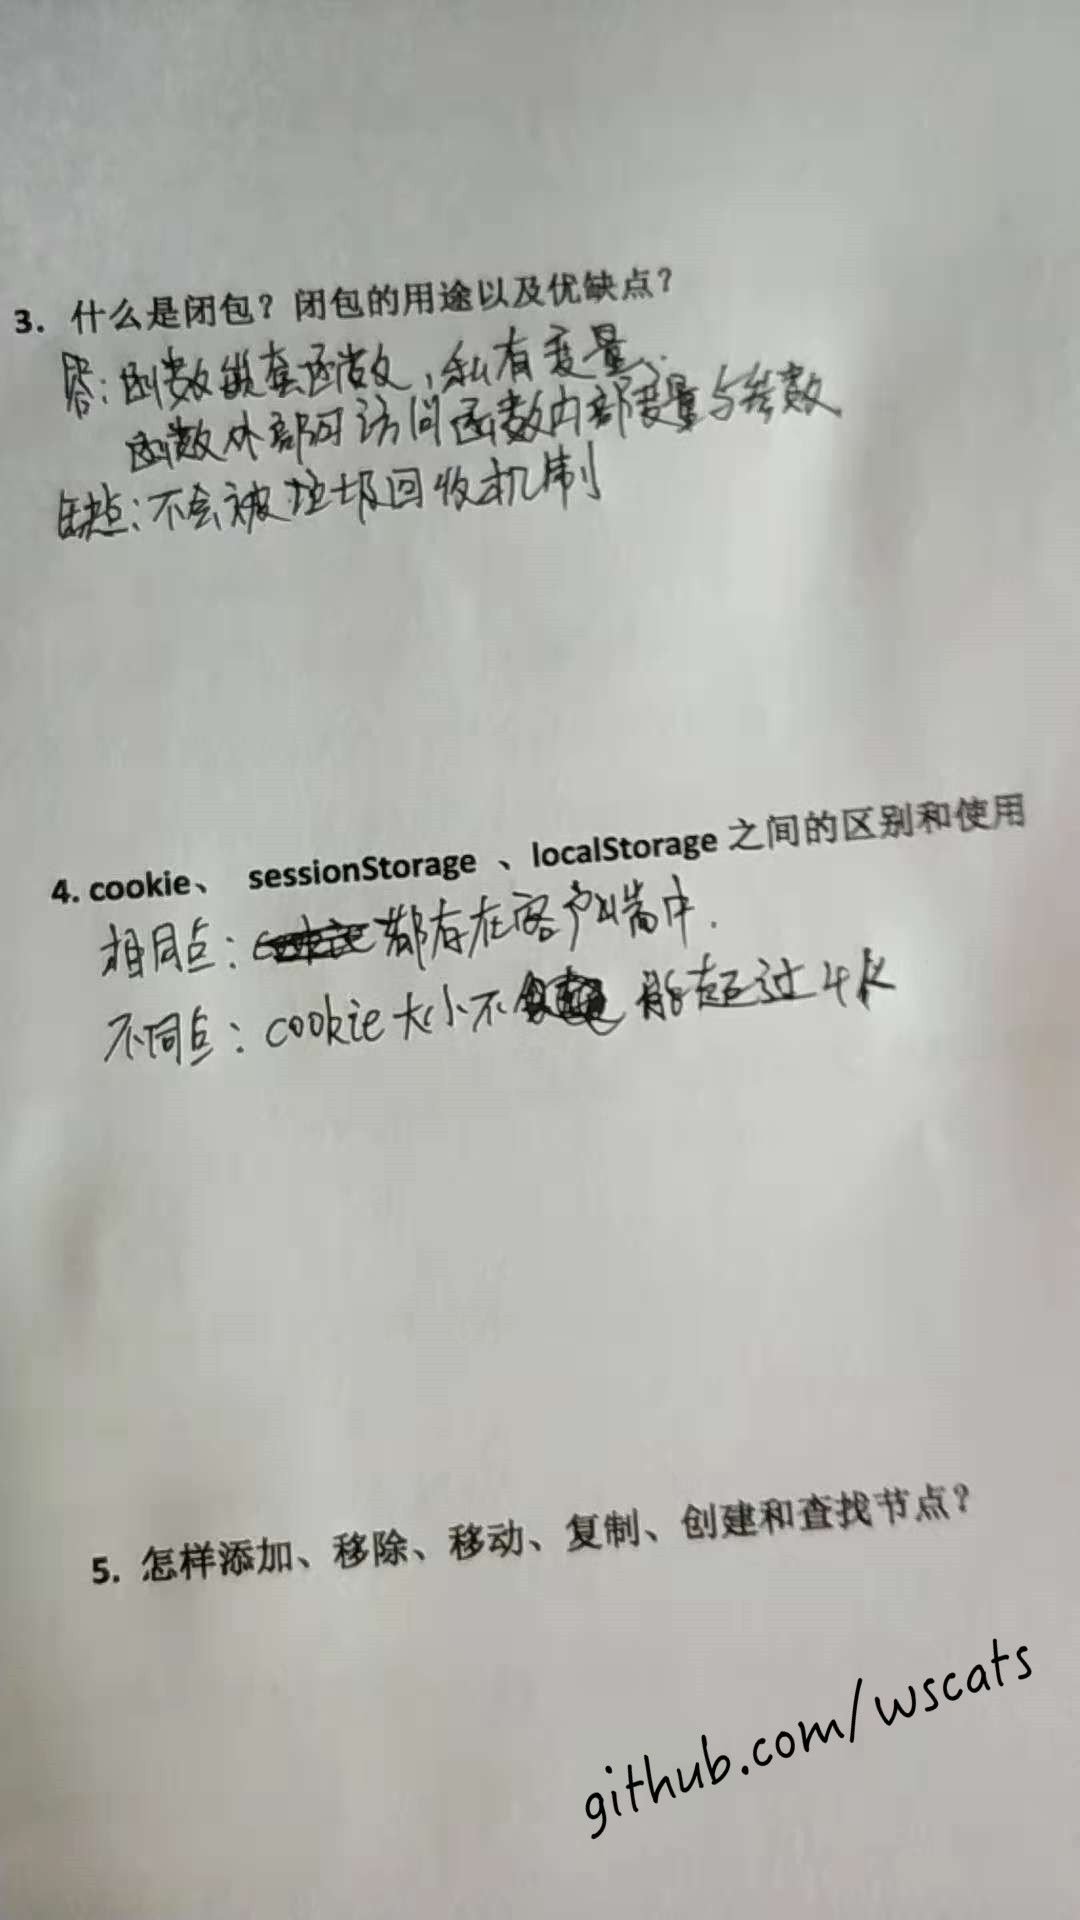 3. 什么是闭包？闭包的用途以及优缺点？
答：函数嵌套函数，私有变量，
函数外部可访问函数内部变量与参数
缺点：不会被垃圾回收机制
4. cookie、 sessionStorage 、localStorage 之间的区别和使用
相同点：都存在客户端中.
不同点：cookie大小不能超过4K
5. 怎样添加、移除、移动、复制、创建和查找节点？
github.com/wscats